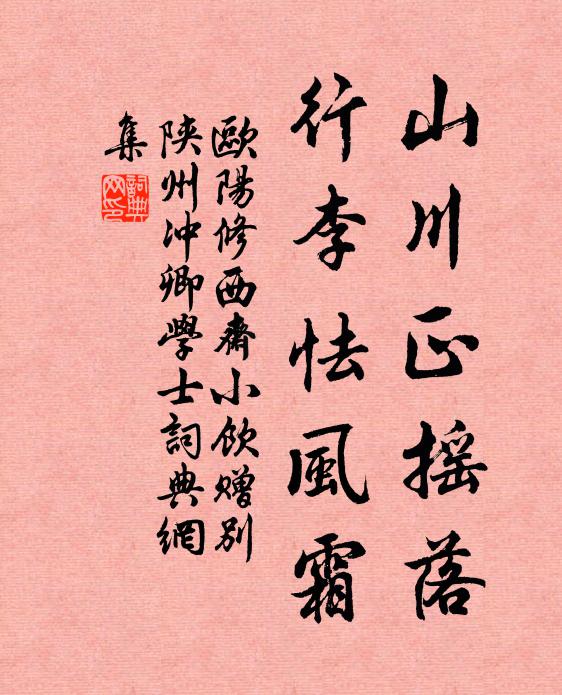 山川正摇落
行李怯風霜
歐陽修西齋小飲贈別
陝州冲卿學士詞典網
集
詞典网印